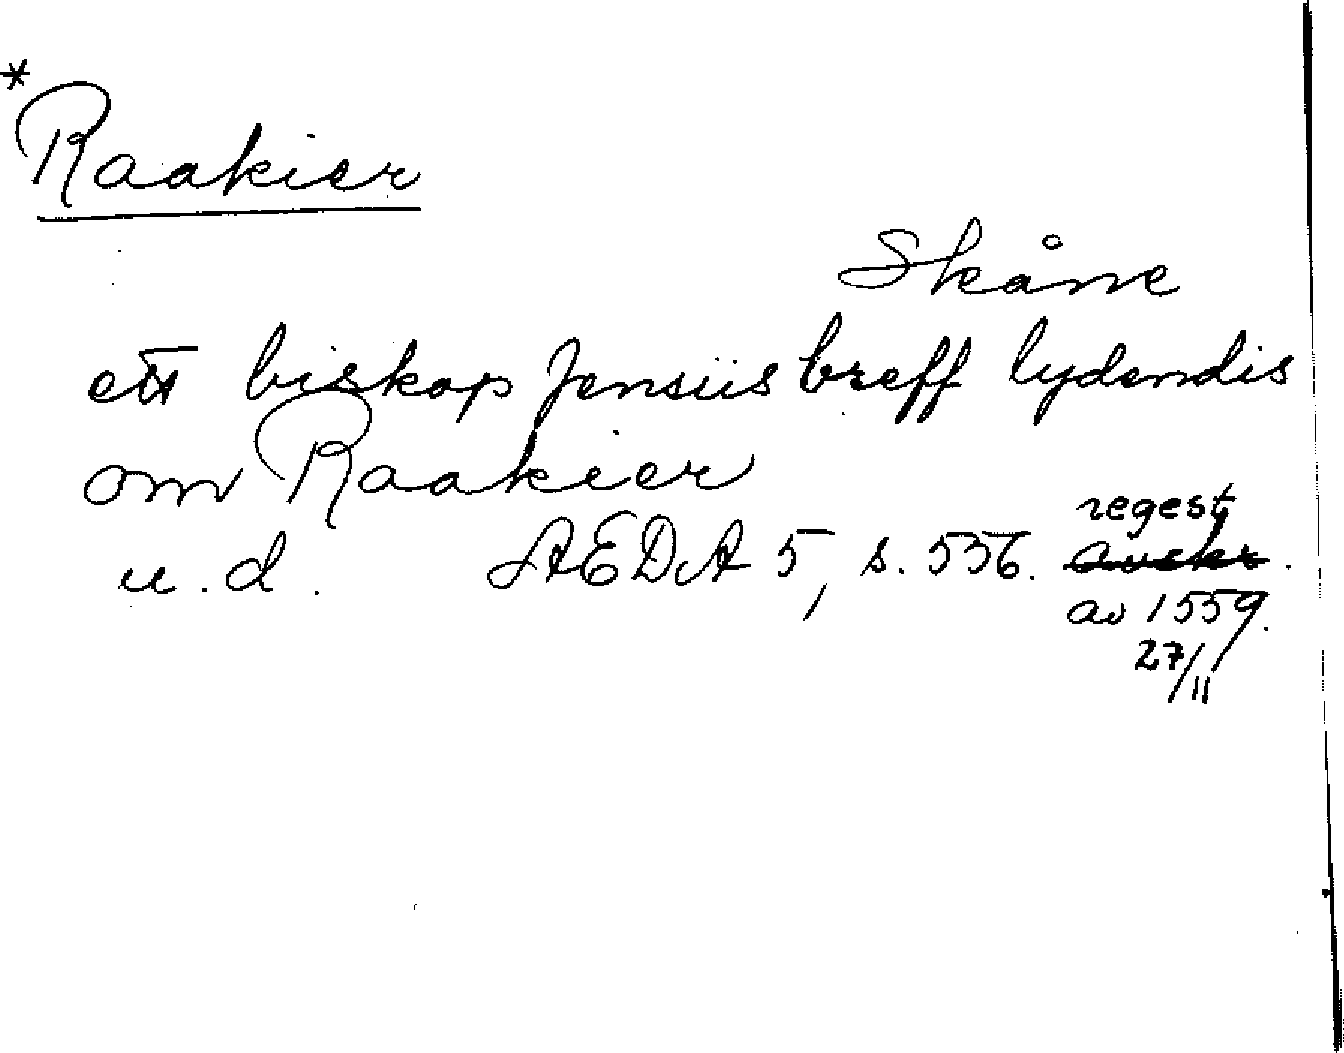 *
Raakier
Skåne
ett biskop Jensiis breff lydendis
om Raakier
u.d. ÆDA 5, s. 536. regest
avskr.
av 1559.
27/11